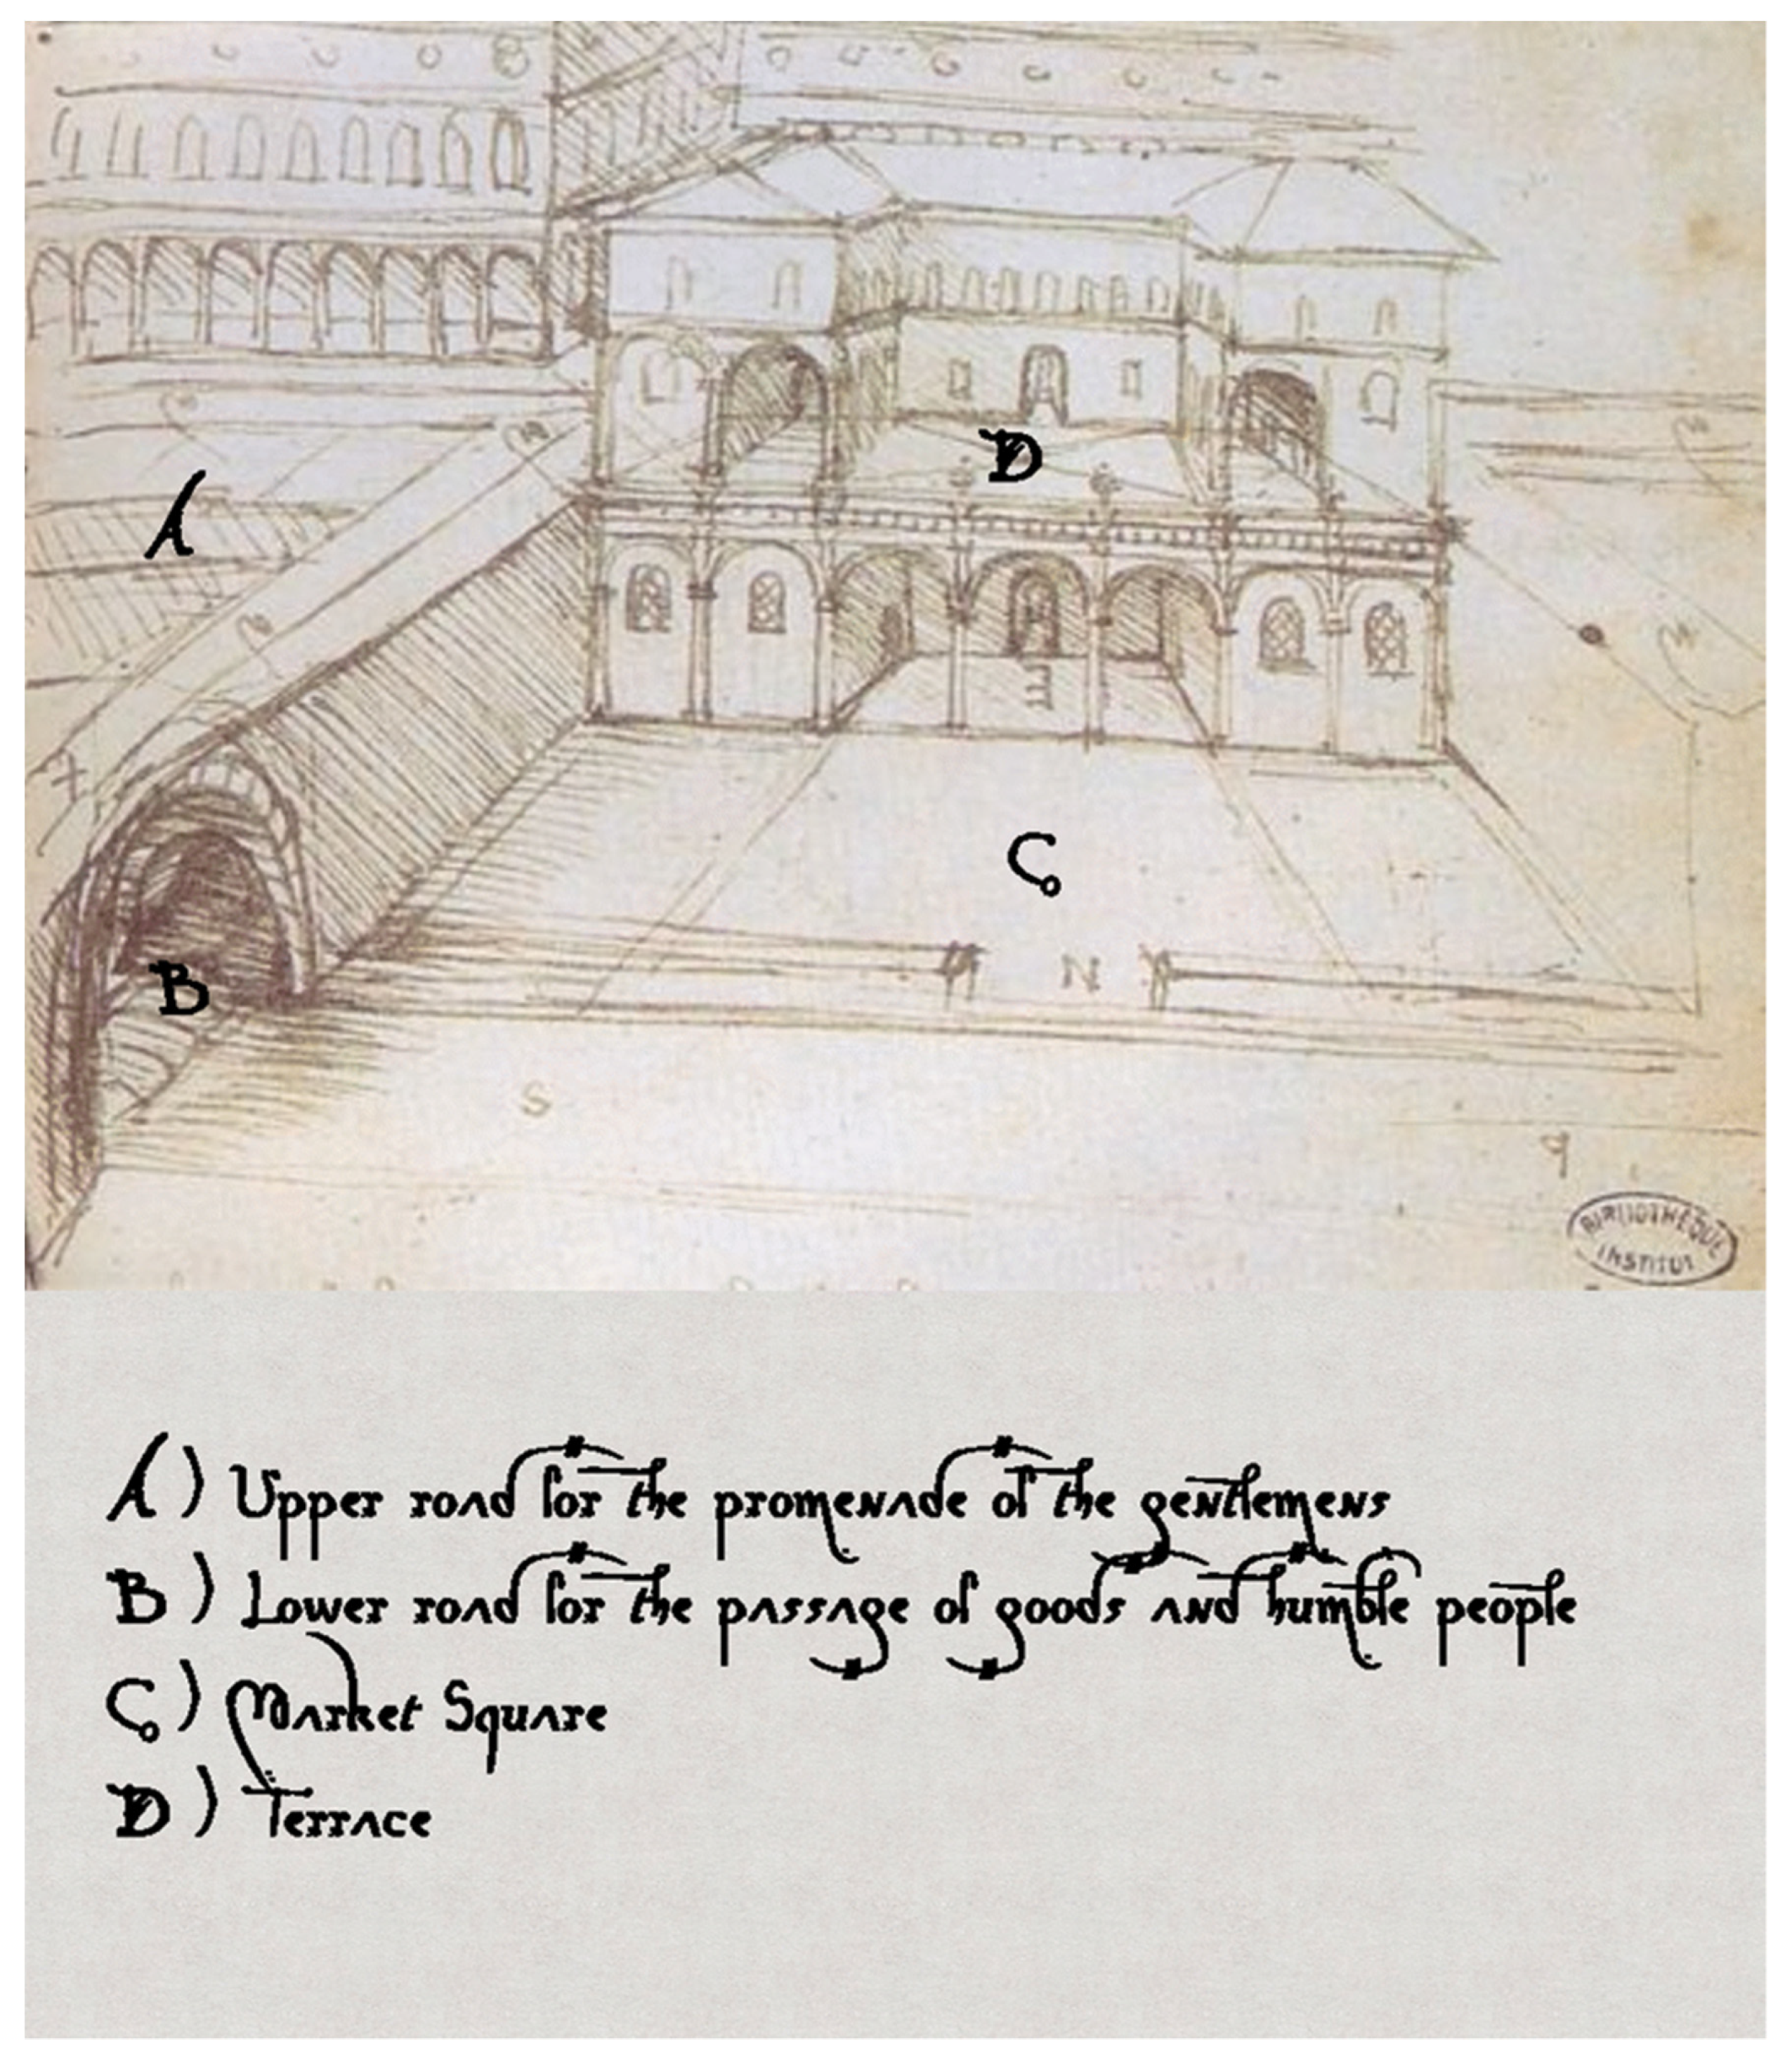 A
D
C
B
N
S
BIBLIOTHEQUE
INSTITUT
A) Upper road for the promenade of the gentlemens
B) Lower road for the passage of goods and humble people
C) Market Square
D) Terrace